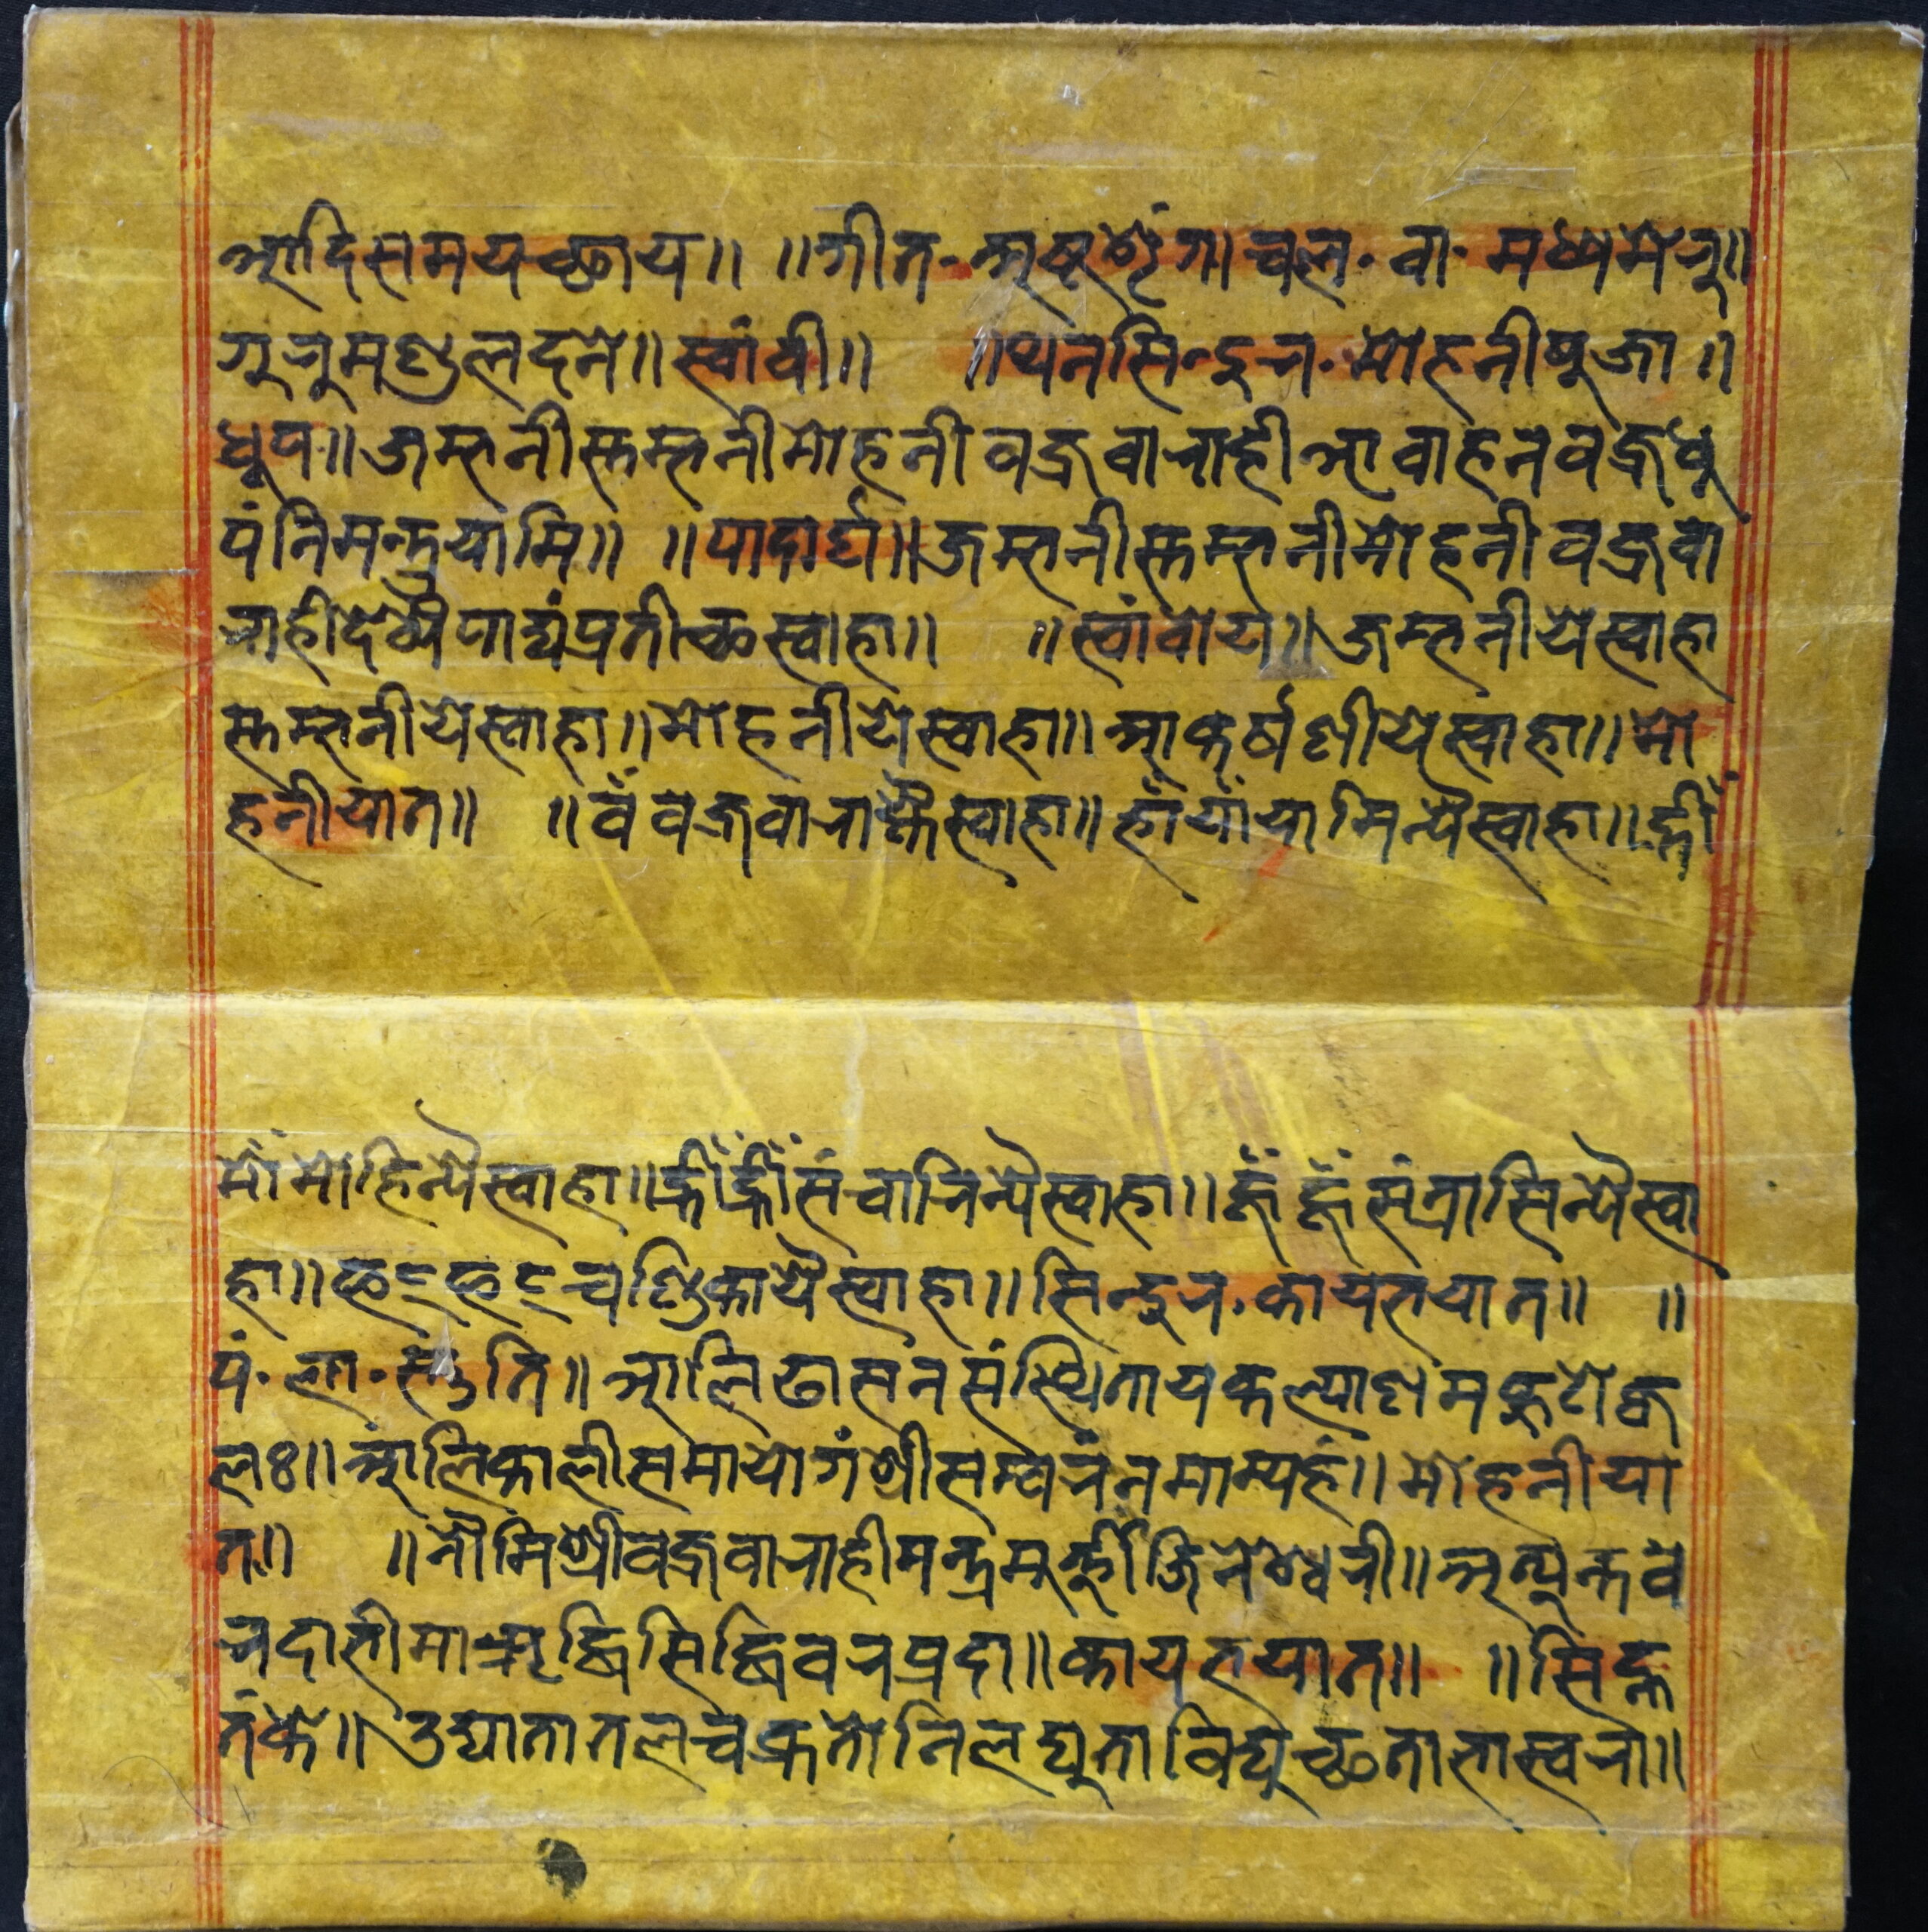 आदिसमयच्छाय॥ ॥गीत-अष्टशृंगाचल॰ वा॰ मध्यमेरु॥
गुरुमण्डलदने॥स्वांवी॥ ॥थनसिन्दुर॰मोहनीपूजा॥
धूप॥जम्भनीस्तम्भनीमोहनीवज्रवाराहीआवाहनवज्रधू
पंनिमन्त्रयामि॥ ॥पादार्घ॥जम्भनीस्तम्भनीमोहनीवज्रवा
राहीदेव्यैपाद्यंप्रतीच्छस्वाहा॥ ॥स्वांवोय॥जम्भनीयेस्वाहा
स्तम्भनीयेस्वाहा॥मोहनीयेस्वाहा॥आकर्षणीयेस्वाहा॥मो
हनीयात॥ ॥वँवज्रवाराह्यैस्वाहा॥हाँयाँयामिन्यैस्वाहा॥ह्रीँ
मोँमोहिन्यैस्वाहा॥ह्रीँह्रीँसंचारिन्यैस्वाहा॥हूँहूँसंत्रासिन्यैस्वा
हा॥फट्फट्चण्डिकायैस्वाहा॥सिन्दुर॰कायभयात॥ ॥
पं॰ला॰स्तुति॥आलिढासनसंस्थितायकल्याणमकुटोज्व
लः॥आलिकालीसमायोगंश्रीसम्वरंनमाम्यहं॥मोहनीया
त॥ ॥नौमिश्रीवज्रवाराहीमन्त्रमूर्त्तीजिनेश्वरी॥अत्यन्तव
रदाभीमाऋद्धिसिद्धिवरप्रदा॥कायभयात॥ ॥सिह्ल
तंके॥उद्यातातलचक्रतोनिलद्युताविद्युच्छताभास्वरा॥